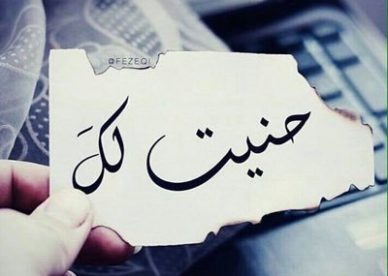 @FEZEQI
حنيت لكَ